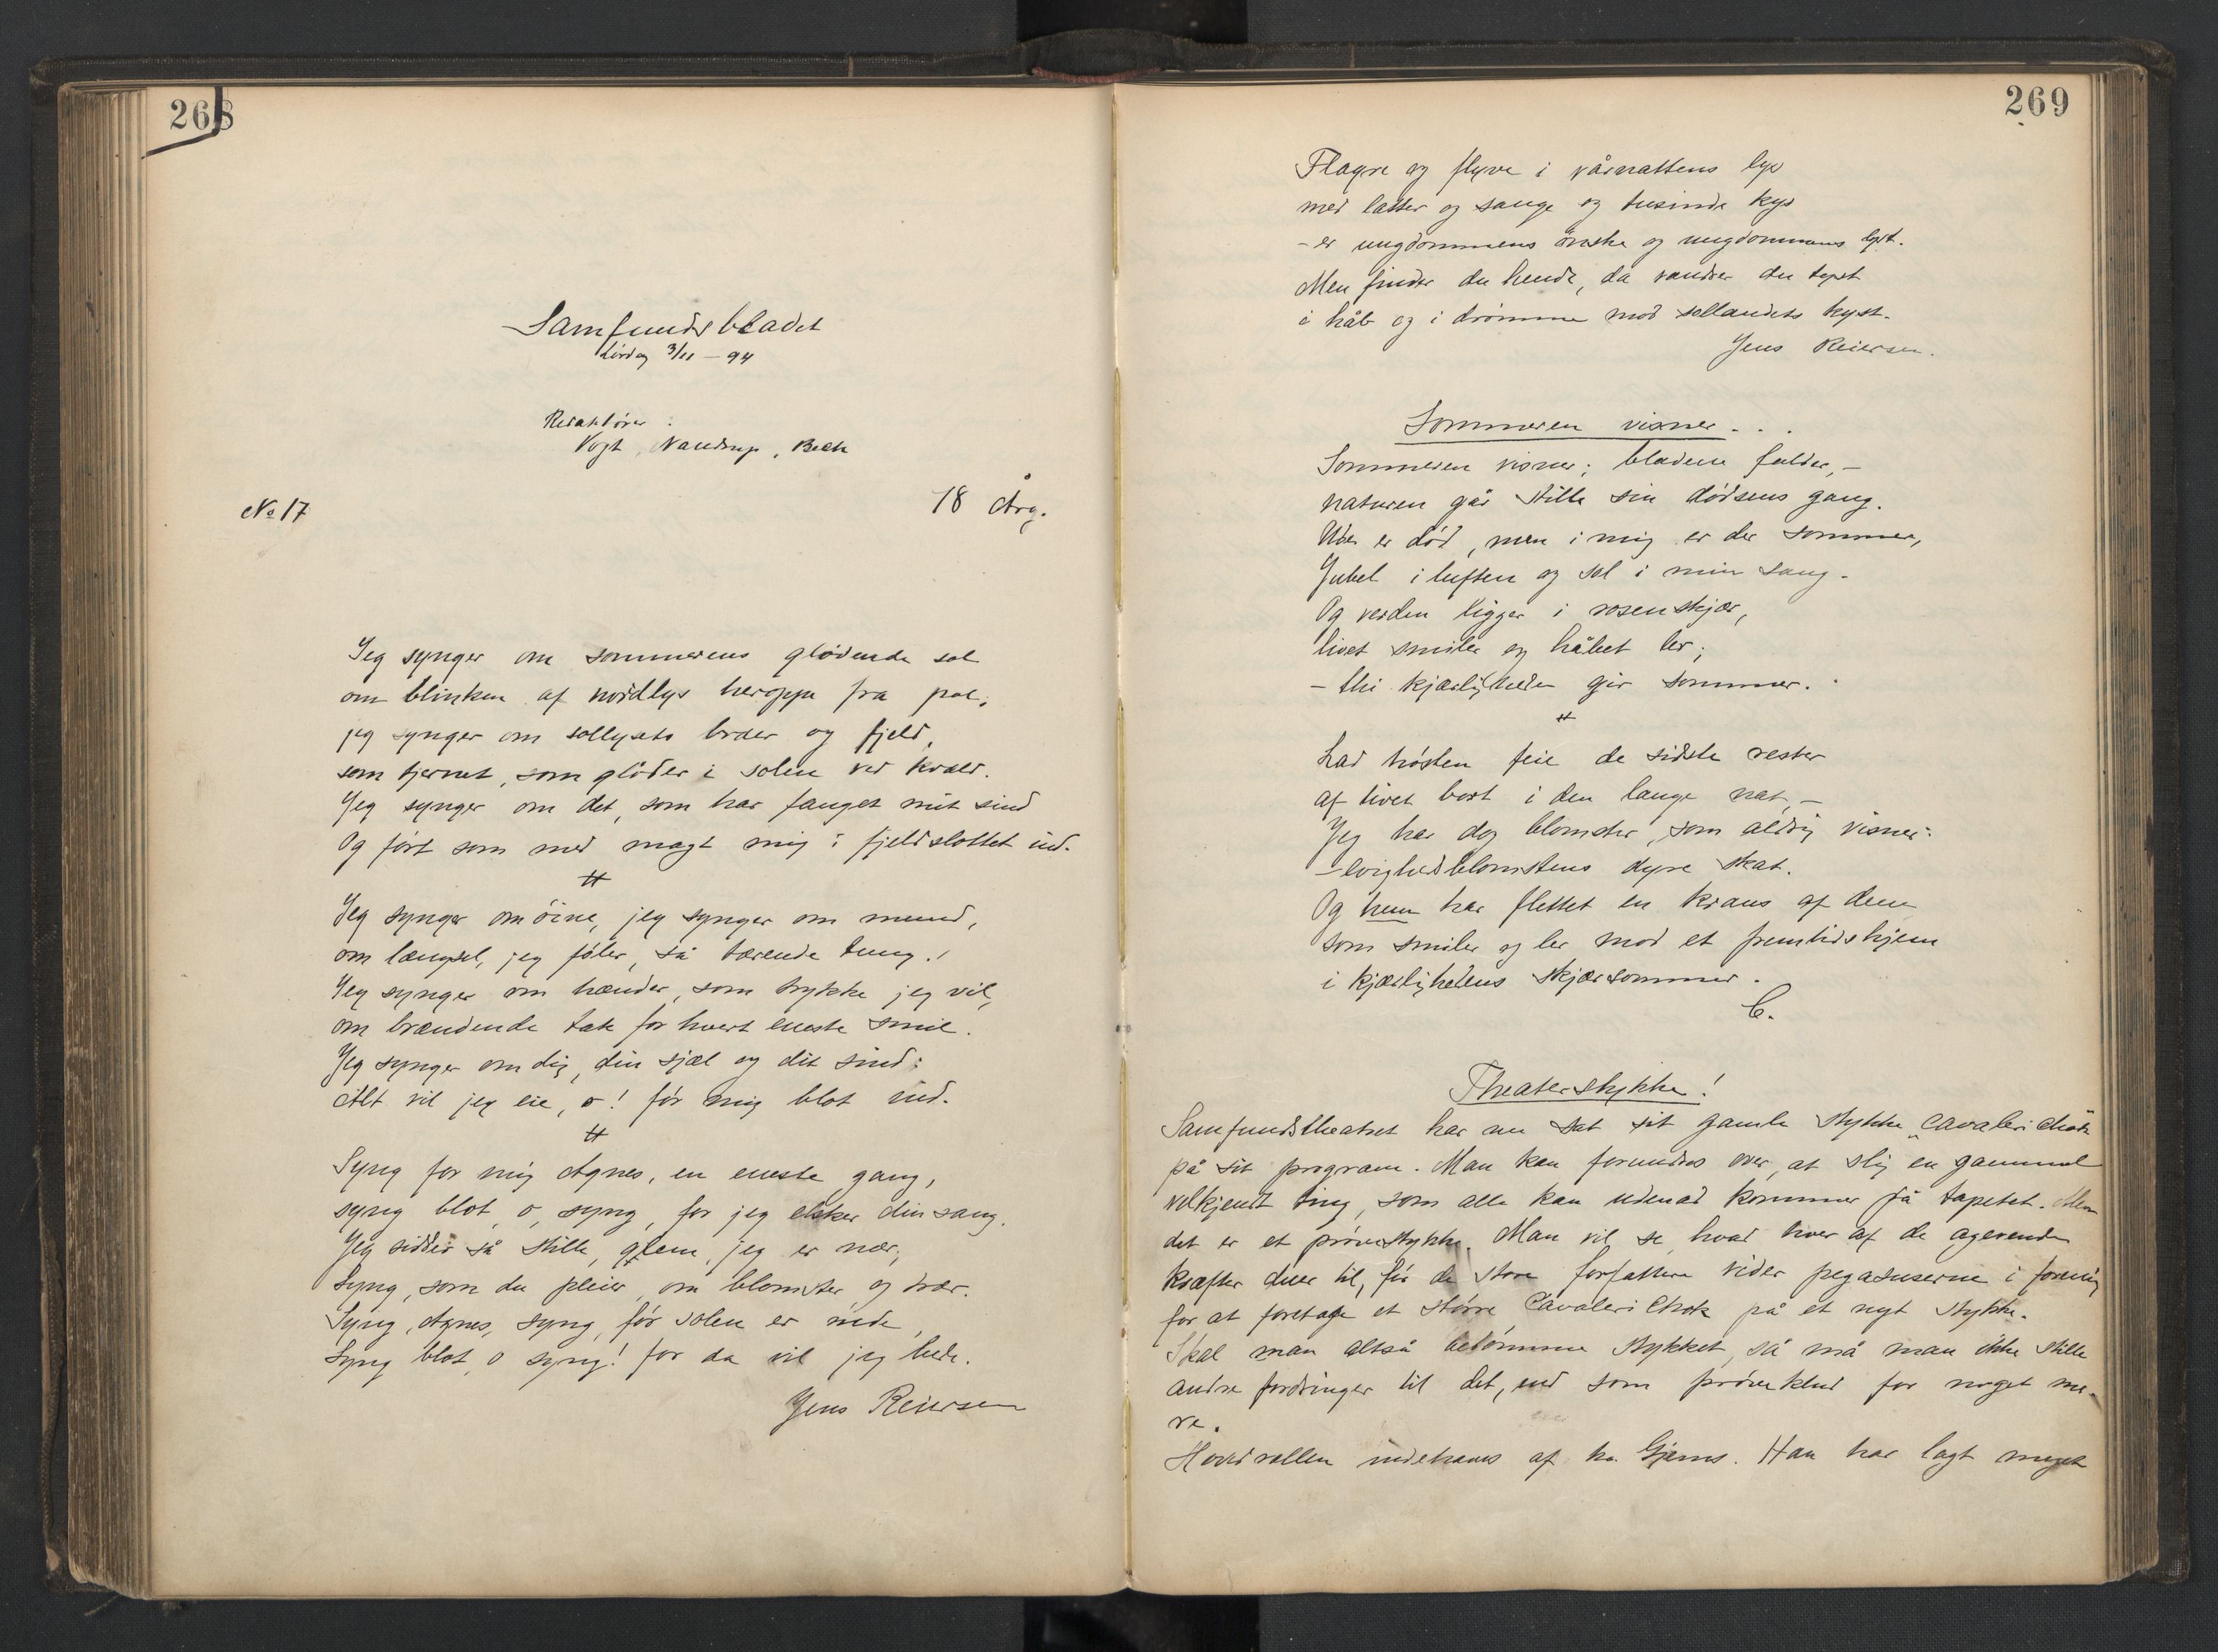 268
Samfundsbladet
Lördag 3/11 - 94
Redaktörer:
Vogt, Nandrup, Bech
No 17
18 Årg.
Jeg synger om sommerens glödende sol
om blinken af nordlys heroppe fra pol,
jeg synger om sollysets bræer og fjeld,
som tjernet, som glöder i solen ved kvæld.
Jeg synger om det, som har fanget mit sind
Og fört som med magt mig i fjeldslottet ind.
#
Jeg synger om öine, jeg synger om mund,
om længsel, jeg föler, så tærende tung!
Jeg synger om hænder, som trykke jeg vil,
om brændende tak for hvert eneste smil.
Jeg synger om dig, din sjæl og dit sind;
Alt vil jeg eie, o! för mig blot ind.
#
Syng for mig Agnes, en eneste gang,
syng blot, o, syng, for jeg elsker din sang.
Jeg sidder så stille, glem, jeg er nær,
Syng, som du pleier, om blomster og trær.
Syng, Agnes, syng, för solen er nede,
Syng blot, o syng! for da vil jeg bede.
Jens Reiersen
269
Flagre og flyve i vårnattens lys
med latter og sange og tusinde kys
- er ungdommens önske og ungdommens lyst.
Men finder du hende, da vandrer du tyst
i håb og i drömme mod sollandets kyst.
Jens Reiersen.
Sommeren visner...
Sommeren visner; bladene falder, -
naturen går stille sin dödsens gang.
Ude er död, men i mig er der sommer,
Jubel i luften og sol i min sang.
Og verden ligger i rosenskjær,
livet smiler og håbet ler;
- thi kjærligheden gir sommer.
#
Lad hösten feie de sidste rester
af livet bort i den lange nat, -
Jeg har dog blomster, som aldrig visner:
- evighedblomstens dyre skat.
Og hun har flettet en krans af dem
som smiler og ler mod et fremtidshjem
i kjærlighedens skjærsommer.
C.
Theaterstykke!
Samfundstheatret har nu sat sit gamle stykke „Cavaleri chok
på sit program. Man kan forundres over, at slig en gammel
velkjendt ting, som alle kan udenad kommer på tapetet. Men
det er et prövestykke. Man vil se, hvad hver af de agerende
kræfter duer til, för de store forfattere rider pegasuserne i forening
for at foretage et större Cavaleri Chok på et nyt stykke.
Skal man altså bedömme stykket, så må man ikke stille
andre fordringer til det, end som pröveklud for noget me-
re.
Hovedrollen indehaves af hr. Gjems. Han har lagt meget